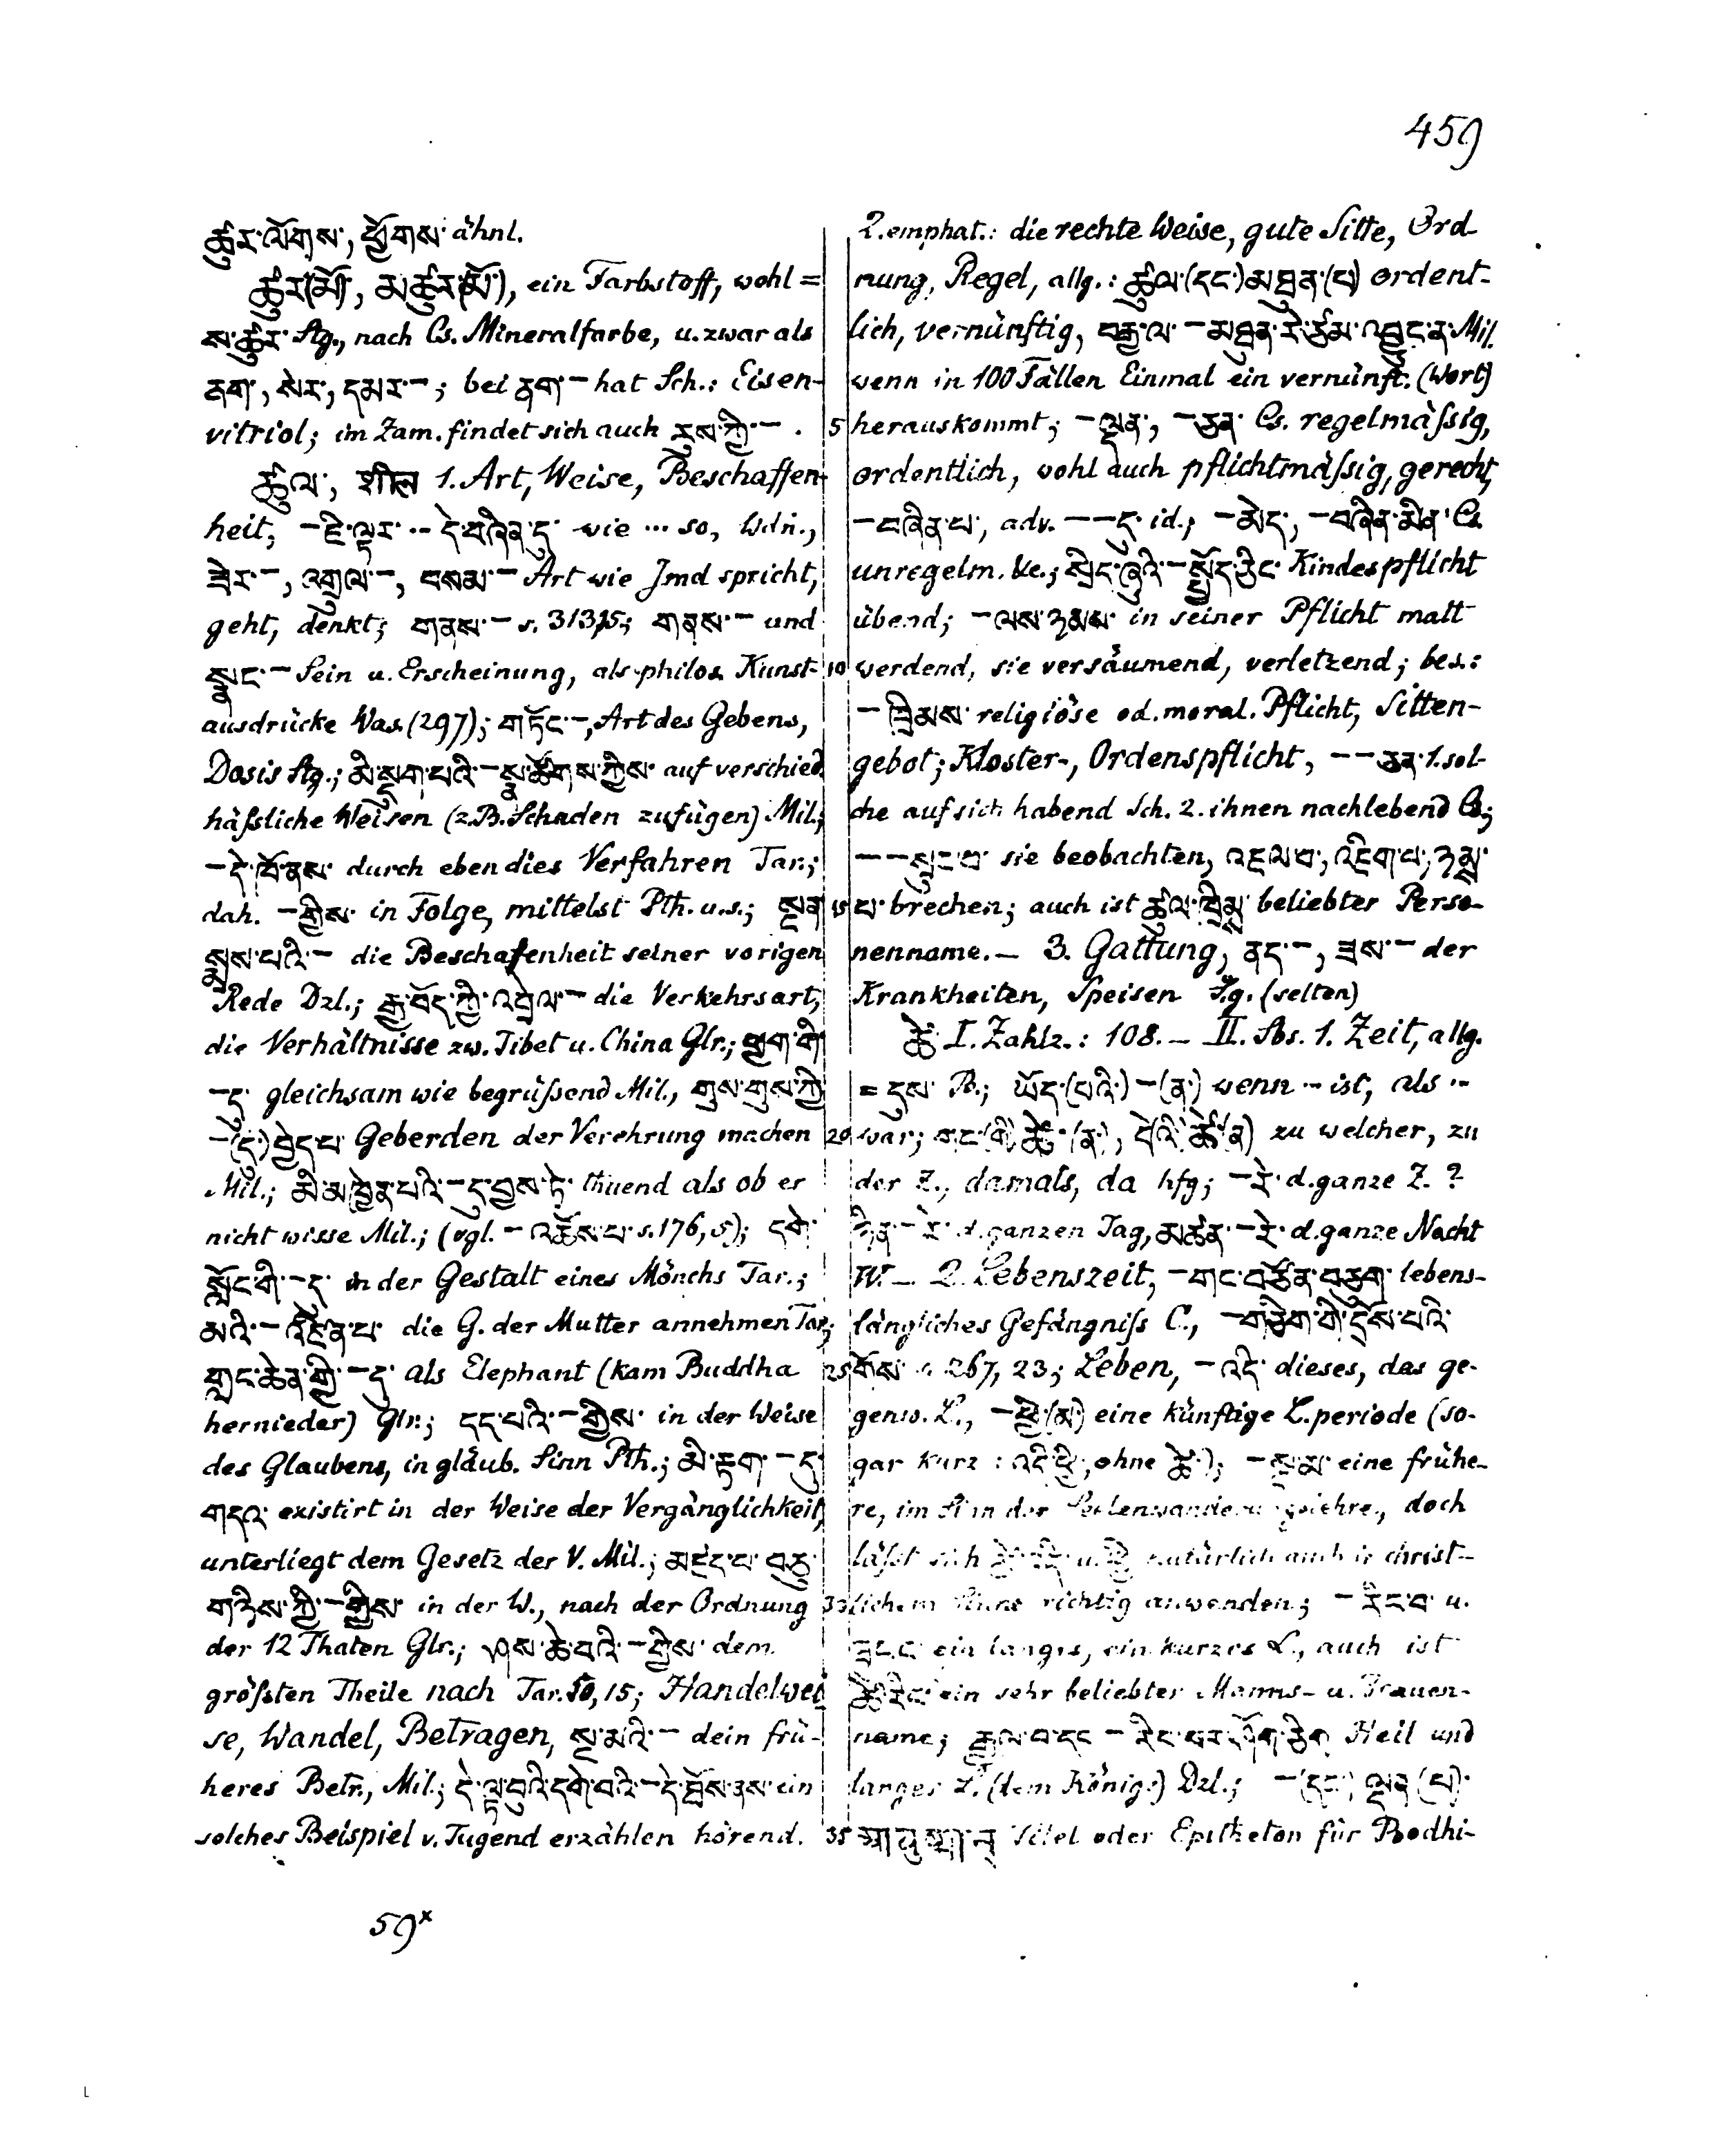 459
ཚུར་ལོགས་, ཕྱོགས་ ähnl.
ཚུར་(མོ), མཚུར་(མོ་), ein Farbstoff, wohl =
ས་ཚུར་ Sg., nach Cs. Mineralfarbe, u. zwar als
ནག་, སེར་, དམར་–; bei ནག་– hat Sch.: Eisen-
vitriol; im Zam. findet sich auch རུས་ཀྱི་– .
ཚུལ་, शील 1. Art, Weise, Beschaffen-
heit, –ཇི་ལྟར་ ·· དེ་བཞིན་དུ་ wie ··· so, Wdn.,
ཟེར་–, འགྲུལ་–, བསམ་– Art wie Jmd spricht,
geht, denkt; གནས་– s. 313,15; གནས་– und
སྣང་– Sein u. Erscheinung, als philos. Kunst-
ausdrücke Was. (297); གཏོང་–, Art des Gebens,
Dosis Sg.; མི་སྡུག་པའི་–སྣ་ཚོགས་ཀྱིས་ auf verschied.
häßliche Weisen (z.B. Schaden zufügen) Mil.;
–དེ་ཁོ་ནས་ durch eben dies Verfahren Tar.;
dah. –གྱིས་ in Folge, mittelst Pth. u. s.; སྔན་
སྨྲས་པའི་– die Beschaffenheit seiner vorigen
Rede Dzl.; རྒྱ་བོད་ཀྱི་འབྲེལ་– die Verkehrsart,
die Verhältnisse zw. Tibet u. China Glr.; ཕྱག་གི་
–དུ་ gleichsam wie begrüßend Mil., གུས་གུས་ཀྱི་
–(དུ་) བྱེད་པ་ Geberden der Verehrung machen
Mil.; མི་མཁྱེན་པའི་–དུ་བྱས་ཏེ་ thuend als ob er
nicht wisse Mil.; (vgl. –འཆོས་པ་ s. 176, 5); དགེ་
སློང་གི་–དུ་ in der Gestalt eines Mönchs Tar.;
མའི་–འཛིན་པ་ die G. der Mutter annehmen Tar.;
གླང་ཆེན་གྱི་–དུ་ als Elephant (kam Buddha
hernieder) Glr.; དད་པའི་–གྱིས་ in der Weise
des Glaubens, in gläub. Sinn Pth.; མི་རྟག་–དུ་
གདའ་ existirt in der Weise der Vergänglichkeit,
unterliegt dem Gesetz der V. Mil.; མཛད་པ་བཅུ་
གཉིས་ཀྱི་–གྱིས་ in der W., nach der Ordnung
der 12 Thaten Glr.; ཤས་ཆེ་བའི་–གྱིས་ dem
größten Theile nach Tar. 50, 15; Handelwei-
se, Wandel, Betragen, སྔ་མའི་– dein frü-
heres Betr., Mil.; དེ་ལྟ་བུའི་དགེ་བའི་–དེ་ཐོས་ནས་ ein
solches Beispiel v. Tugend erzählen hörend.
59*
2. emphat.: die rechte Weise, gute Sitte, Ord-
nung, Regel, allg.: ཚུལ་(དང་)མཐུན་(པ) ordent-
lich, vernünftig, བརྒྱ་ལ་–མཐུན་རེ་ཙམ་འབྱུང་ན་ Mil.
wenn in 100 Fällen Einmal ein vernünft. (Wort)
5 herauskommt; –ལྡན་, –ཅན་ Cs. regelmäßig,
ordentlich, wohl auch pflichtmäßig, gerecht,
–བཞིན་པ་, adv. ––དུ་ id.; –མེད་, –བཞིན་མིན་ Cs.
unregelm. &c.; སྲིད་ཞུའི་–སྤྱོད་ཅིང་ Kindespflicht
übend; –ལས་ཉམས་ in seiner Pflicht matt
10 werdend, sie versäumend, verletzend; bes.:
–ཁྲིམས་ religiöse od. moral. Pflicht, Sitten-
gebot; Kloster-, Ordenspflicht, ––ཅན་ 1. sol-
che auf sich habend Sch. 2. ihnen nachlebend Cs;
––སྲུང་བ་ sie beobachten, འཇལ་བ་, འཇིག་པ་, ཉམས་
15 པ་ brechen; auch ist ཚུལ་ཁྲིམས་ beliebter Perso-
nenname. – 3. Gattung, ནད་–, ཟས་– der
Krankheiten, Speisen S.g. (selten)
ཚེ་ I. Zahlz.: 108. – II. Sbs. 1. Zeit, allg.
= དུས་ B.; ཡོད་(པའི་)–(ན་) wenn ·· ist, als ··
20 war; གང་(གི)ཚེ་(ན་), དེ(འི་)ཚེ་(ན) zu welcher, zu
der Z., damals, da hfg; –རེ་ d. ganze Z. ?
ཉིན་–རེ་ d. ganzen Tag, མཚན་–རེ་ d. ganze Nacht
W. – 2. Lebenszeit, –གང་བཙོན་བཅུག་ lebens-
längliches Gefängniß C., –གཅིག་གི་དྲོས་པའི་
25 གོས་ s. 267, 23; Leben, –འདི་ dieses, das ge-
genw. L., –ཕྱི་(མ་) eine künftige L.periode (so-
gar kurz: འདི་ཕྱི་, ohne ཚེ་); –སྔ་མ་ eine frühe-
re, im Sinn der Seelenwanderungslehre, doch
läßt sich ཚེ་འདི་ u. ཕྱི་ natürlich auch in christ-
30 lichem Sinne richtig anwenden; –རིང་བ་ u.
ཐུང་ང་ ein langes, ein kurzes L., auch ist
ཚེ་རིང་ ein sehr beliebter Manns- u. Frauen-
name; རྒྱལ་བ་དང་–རིང་པར་ཤོག་ཅིག་ Heil und
langes L. (dem König!) Dzl.; –(དང་) ལྡན་(པ)་
35 Titel oder Epitheton für Bodhi-